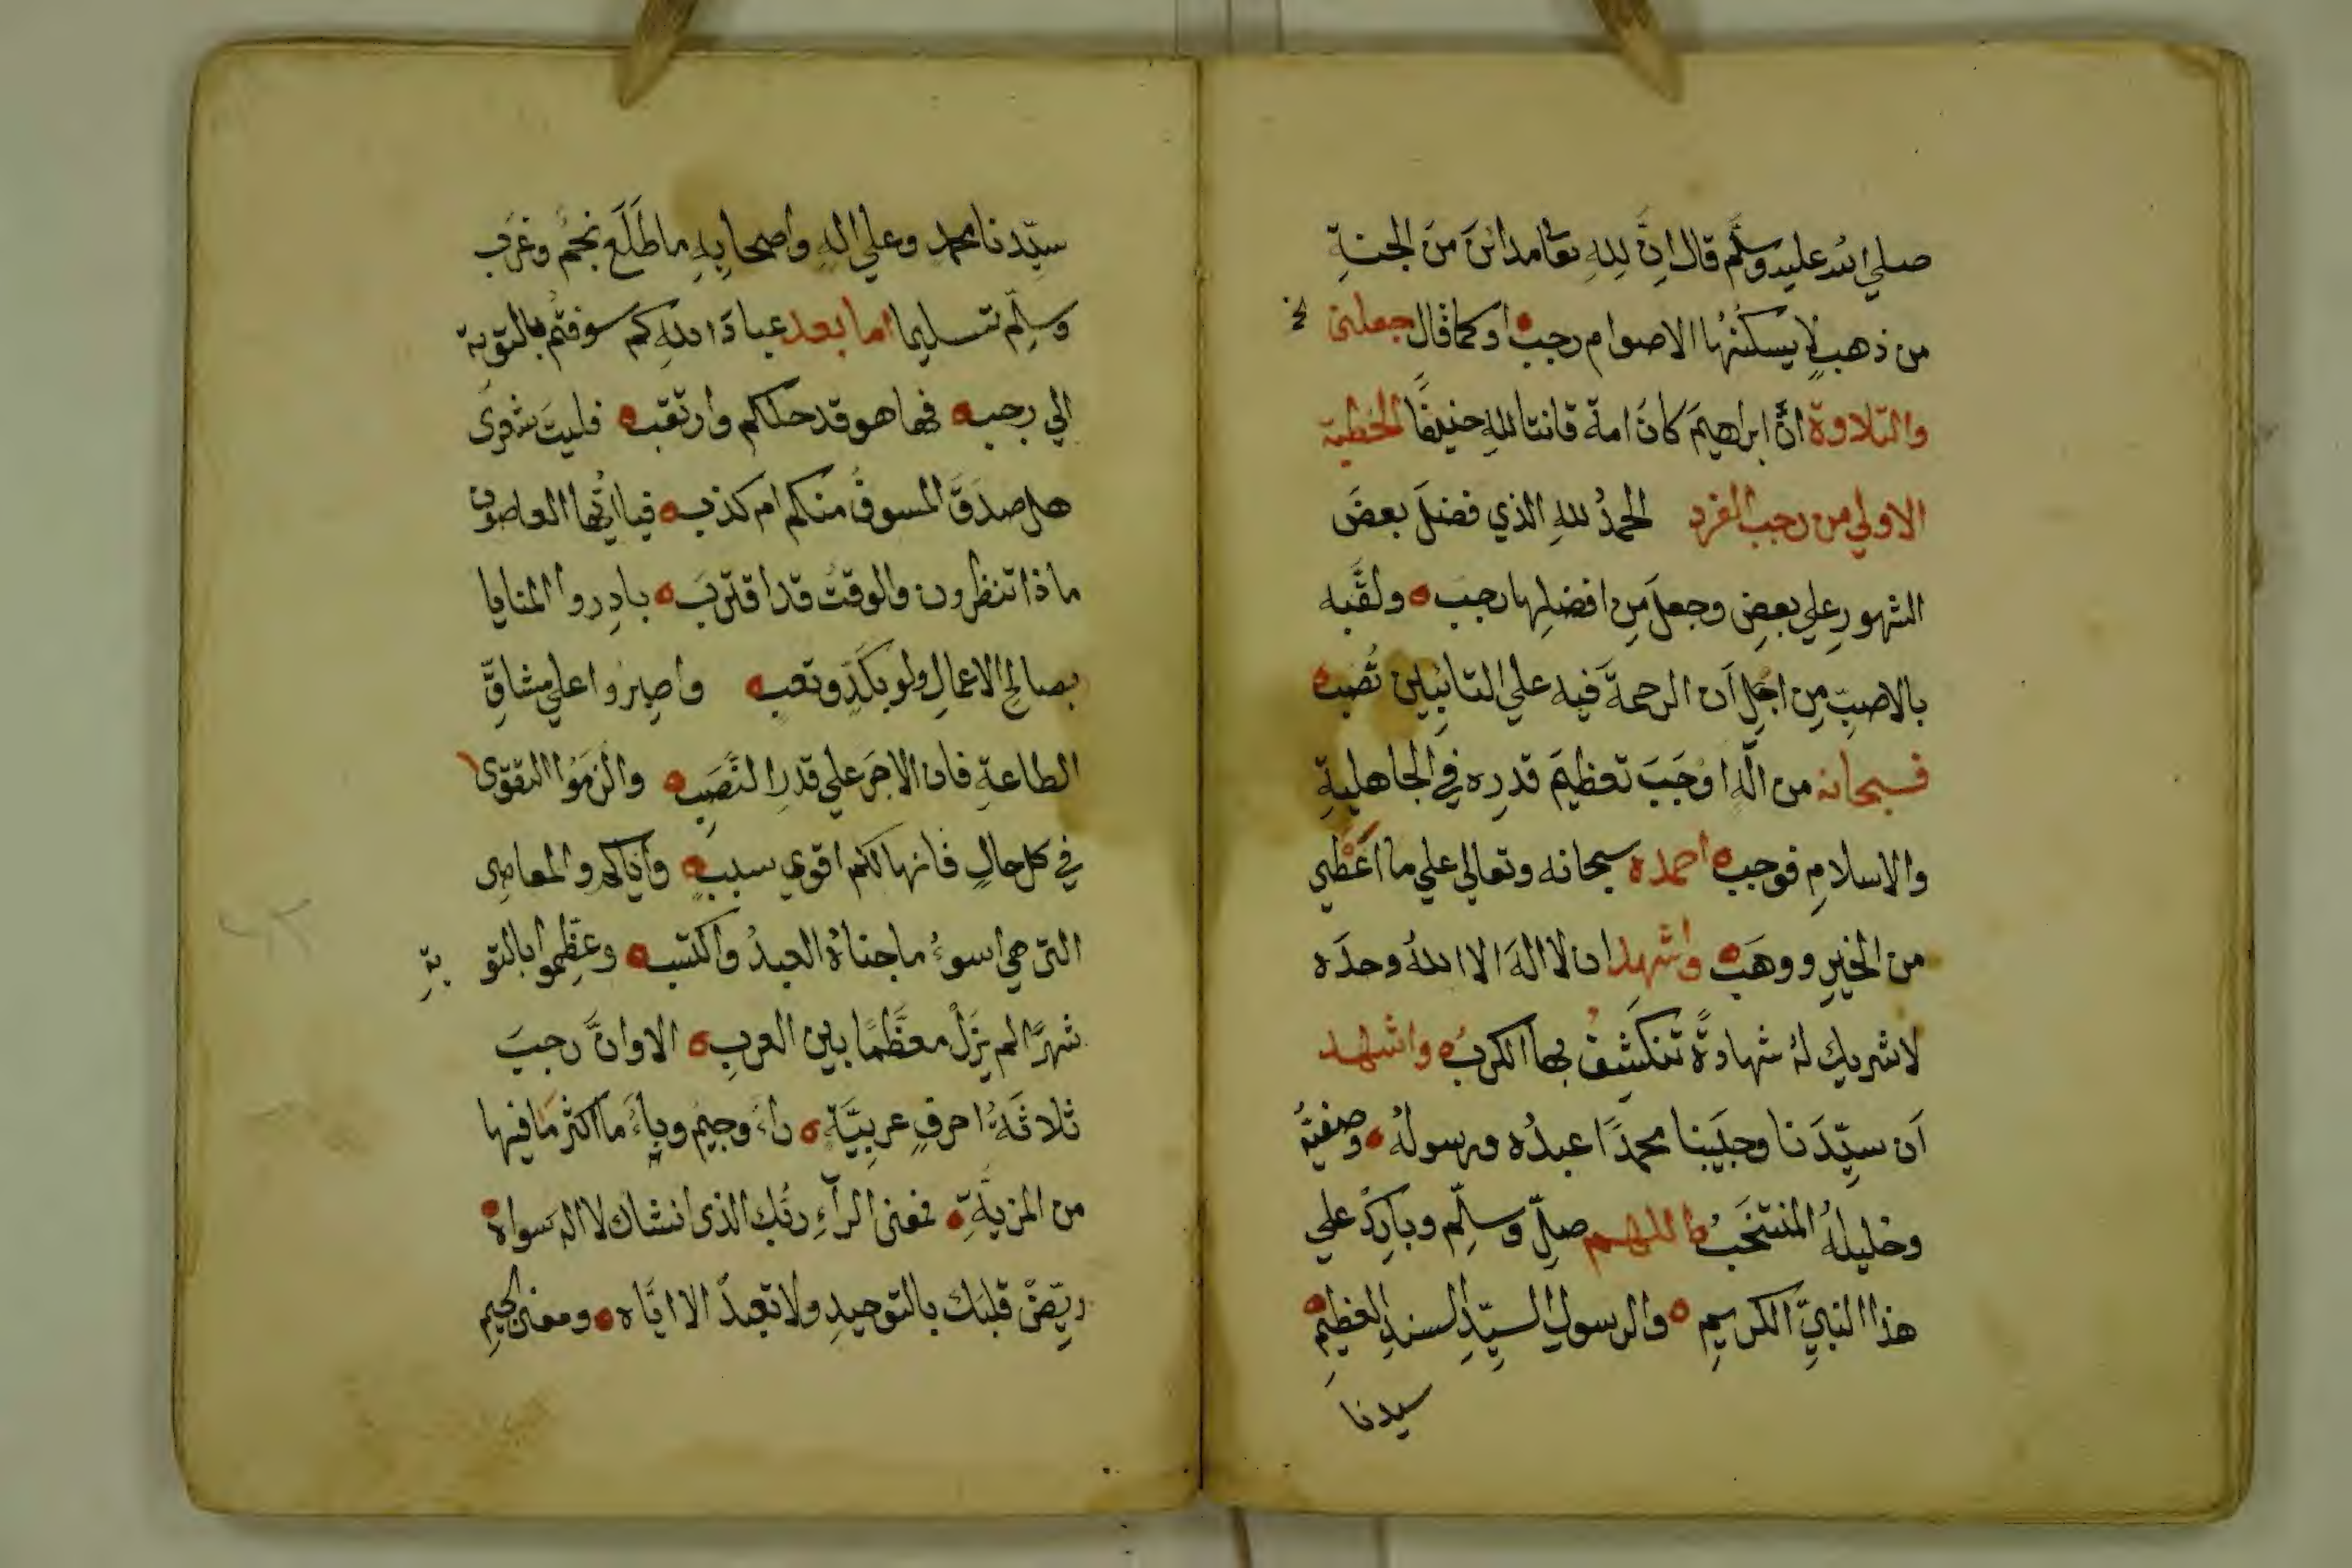 صلي الله عليه وسلَّم قال اِنَّ لِلهِ تعا مدائنَ منَ الجنةِ
من ذهبٍ لا يسكنُهَا الا صوام رجب او كما قال جعلنى الخ
والتلاوة انَّ ابراهيمَ كانَ امة قانتا للهِ حنيفًا الخطبة
الاولي من رجب الفرد الحمدُ للهِ الذي فضلَ بعضَ
الشهورِ علي بعضٍ وجعلَ مِن افضلِها رجبَ ولقَّبه
بالاصبِّ مِن اجْلِ اَن الرحمةَ فيه علي التائبين تُصَب
فسبحانه من الٰهٍ اوْجَبَ تعظيمَ قدرِه في الجاهليةِ
والاسلامِ فوجب احمده سبحانه وتعالي علي ما اَعْطي
من الخيرِ ووهَب واشهد ان لا الهَ الا اللهُ وحدَه
لا شريك لهُ شهادةً تنكشِفُ بها الكربُ واشهد
اَن سيِّدَنا وحبيبَنا محمدًا عبدُه ورسولهُ وصفيُّهُ
وخليلهُ المنتخَبُ اللهم صلِّ وسلِّم وباركْ علي
هذا النبيِّ الكريمِ والرسولِ السيِّدِ السندِ العظيمِ
سيدنا
سيِّدنا محمدٍ وعلي الهِ واصحابِهِ ما طَلَعَ نجمٌ وغَرَب
وسلِّم تسليما اما بعد عبادَ اللهِ كم سوفتُم بالتوبة
الي رجب فها هو قد حلكم وارتقب فليتَ شعرى
هل صدَقَ المسوفُ منكم ام كذب فيا ايُّها العاصون
ماذا تنظرون والوقتُ قد اقتربَ بادِروا المنايا
بصالحِ الاعمالِ ولو بكَدٍّ وتعبٍ واصبِرُوا علي مشاقِّ
الطاعةِ فان الاجرَ علي قدرِ النَّصَبِ والزَمُوا التقوى
في كل حالٍ فانها لكم اقوي سببٍ واياكم والمعاصى
التى هي اسوءُ ما جناهُ العبدُ واكتسب وعظِّموا بالتوبةِ
شهرًا لم يزَلْ معظَّمًا بين العربِ الا وانَّ رجبَ
ثلاثَةُ احرفٍ عربيَّةٍ راءٌ وجيمٌ وباءٌ ما اكثرَ ما فيها
من المزيَّةِ فمعنى الرآءِ ربُّك الذى انشاك لا اله سواه
ريِّضْ قلبَك بالتوحيدِ ولا تعبدْ الا ايَّاه ومعنى الجيمِ